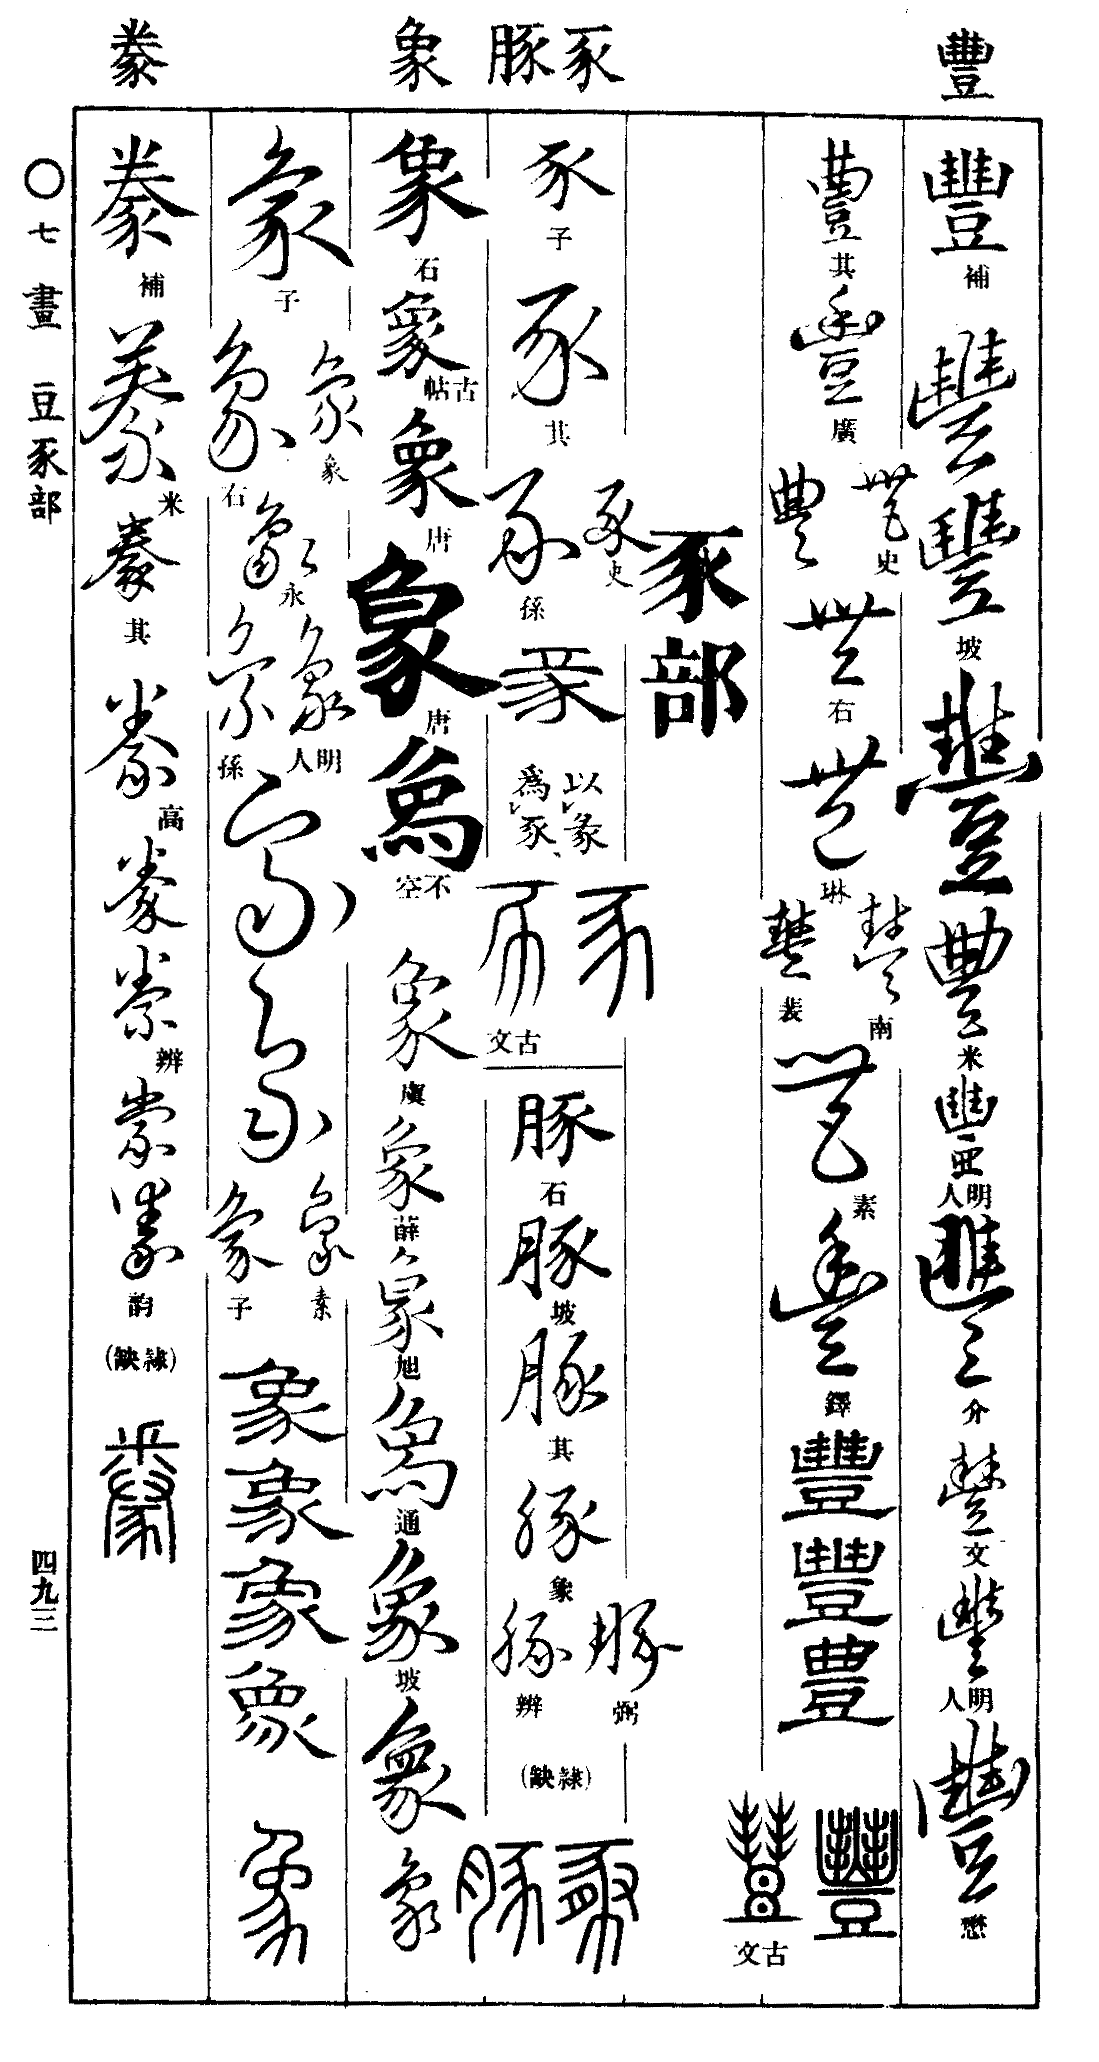 豐
豕豚
象
豢
豐 補
豐
豐 坡
豐
豐 米
豐 明人
豐 介
豐 文
豐 明人
豐 懋
豐 其
豐 廣
豐 豐 史
豐 右
豐 琳
豐 裴 豐 南
豐 素
豐 鐸
豐
豐
豐
豐 豐 古文
豕部
豕 子
豕 其
豕 孫 豕 史
彖
以彖爲豕
豕 豕 古文
豚 石
豚 坡
豚 其
豚 象
豚 辨 豚 弼
(隸缺)
豚 豚
象 石
象 古帖
象 唐
象 唐
象 不空
象 虞
象 薛
象 旭
象 通
象 坡
象
象
象 子
象 石 象 象
象 永
象 孫 象 明人
象
象
象 子 象 素
象
象
象
象
象
豢 補
豢 米
豢 其
豢 高
豢
豢 辨
豢
豢 韵
(隸缺)
豢
○七畫 豆豕部
四九三